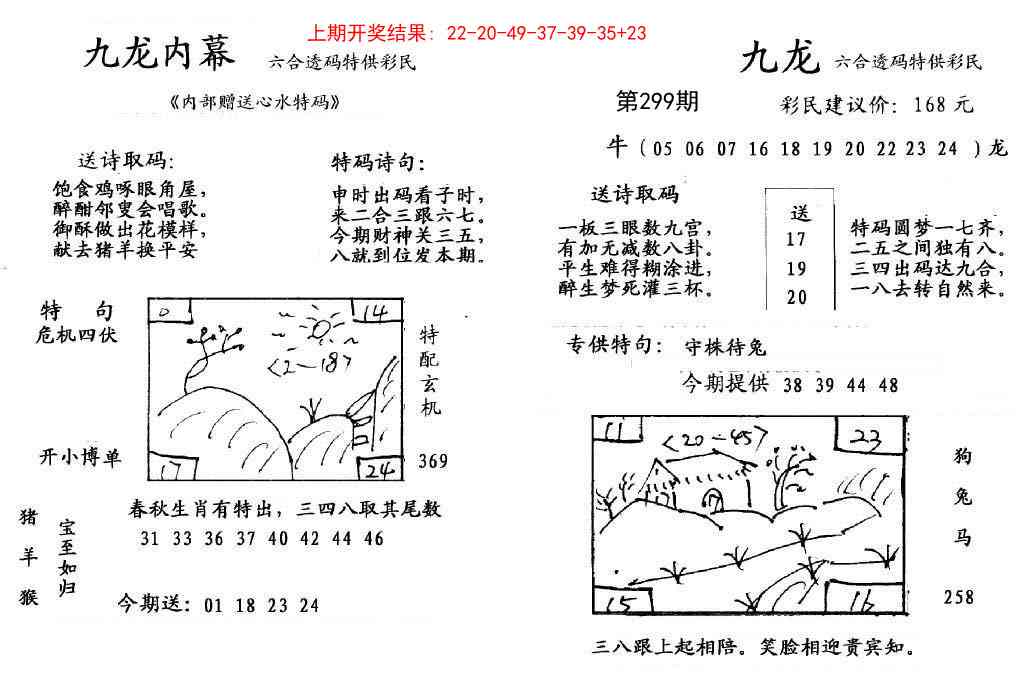 上期开奖结果：22-20-49-37-39-35+23
九龙内幕 六合透码特供彩民
《内部赠送心水特码》
送诗取码：
饱食鸡啄眼角屋，
醉酣邻叟会唱歌。
御酥做出花模样，
献去猪羊换平安
特码诗句：
申时出码看子时，
来二合三跟六七。
今期财神关三五，
八就到位发本期。
特 句
危机四伏
开小博单
0
14
<2-18>
17
24
特配玄机
369
春秋生肖有特出，三四八取其尾数
31 33 36 37 40 42 44 46
猪羊猴
宝至如归
今期送：01 18 23 24
九龙 六合透码特供彩民
第299期 彩民建议价：168元
牛（05 06 07 16 18 19 20 22 23 24 ）龙
送诗取码
一板三眼数九宫，
有加无减数八卦。
平生难得糊涂进，
醉生梦死灌三杯。
送
17
19
20
特码圆梦一七齐，
二五之间独有八。
三四出码达九合，
一八去转自然来。
专供特句： 守株待兔
今期提供 38 39 44 48
11
<20-45>
23
17
17
15
16
狗
兔
马
258
三八跟上起相陪。笑脸相迎贵宾知。